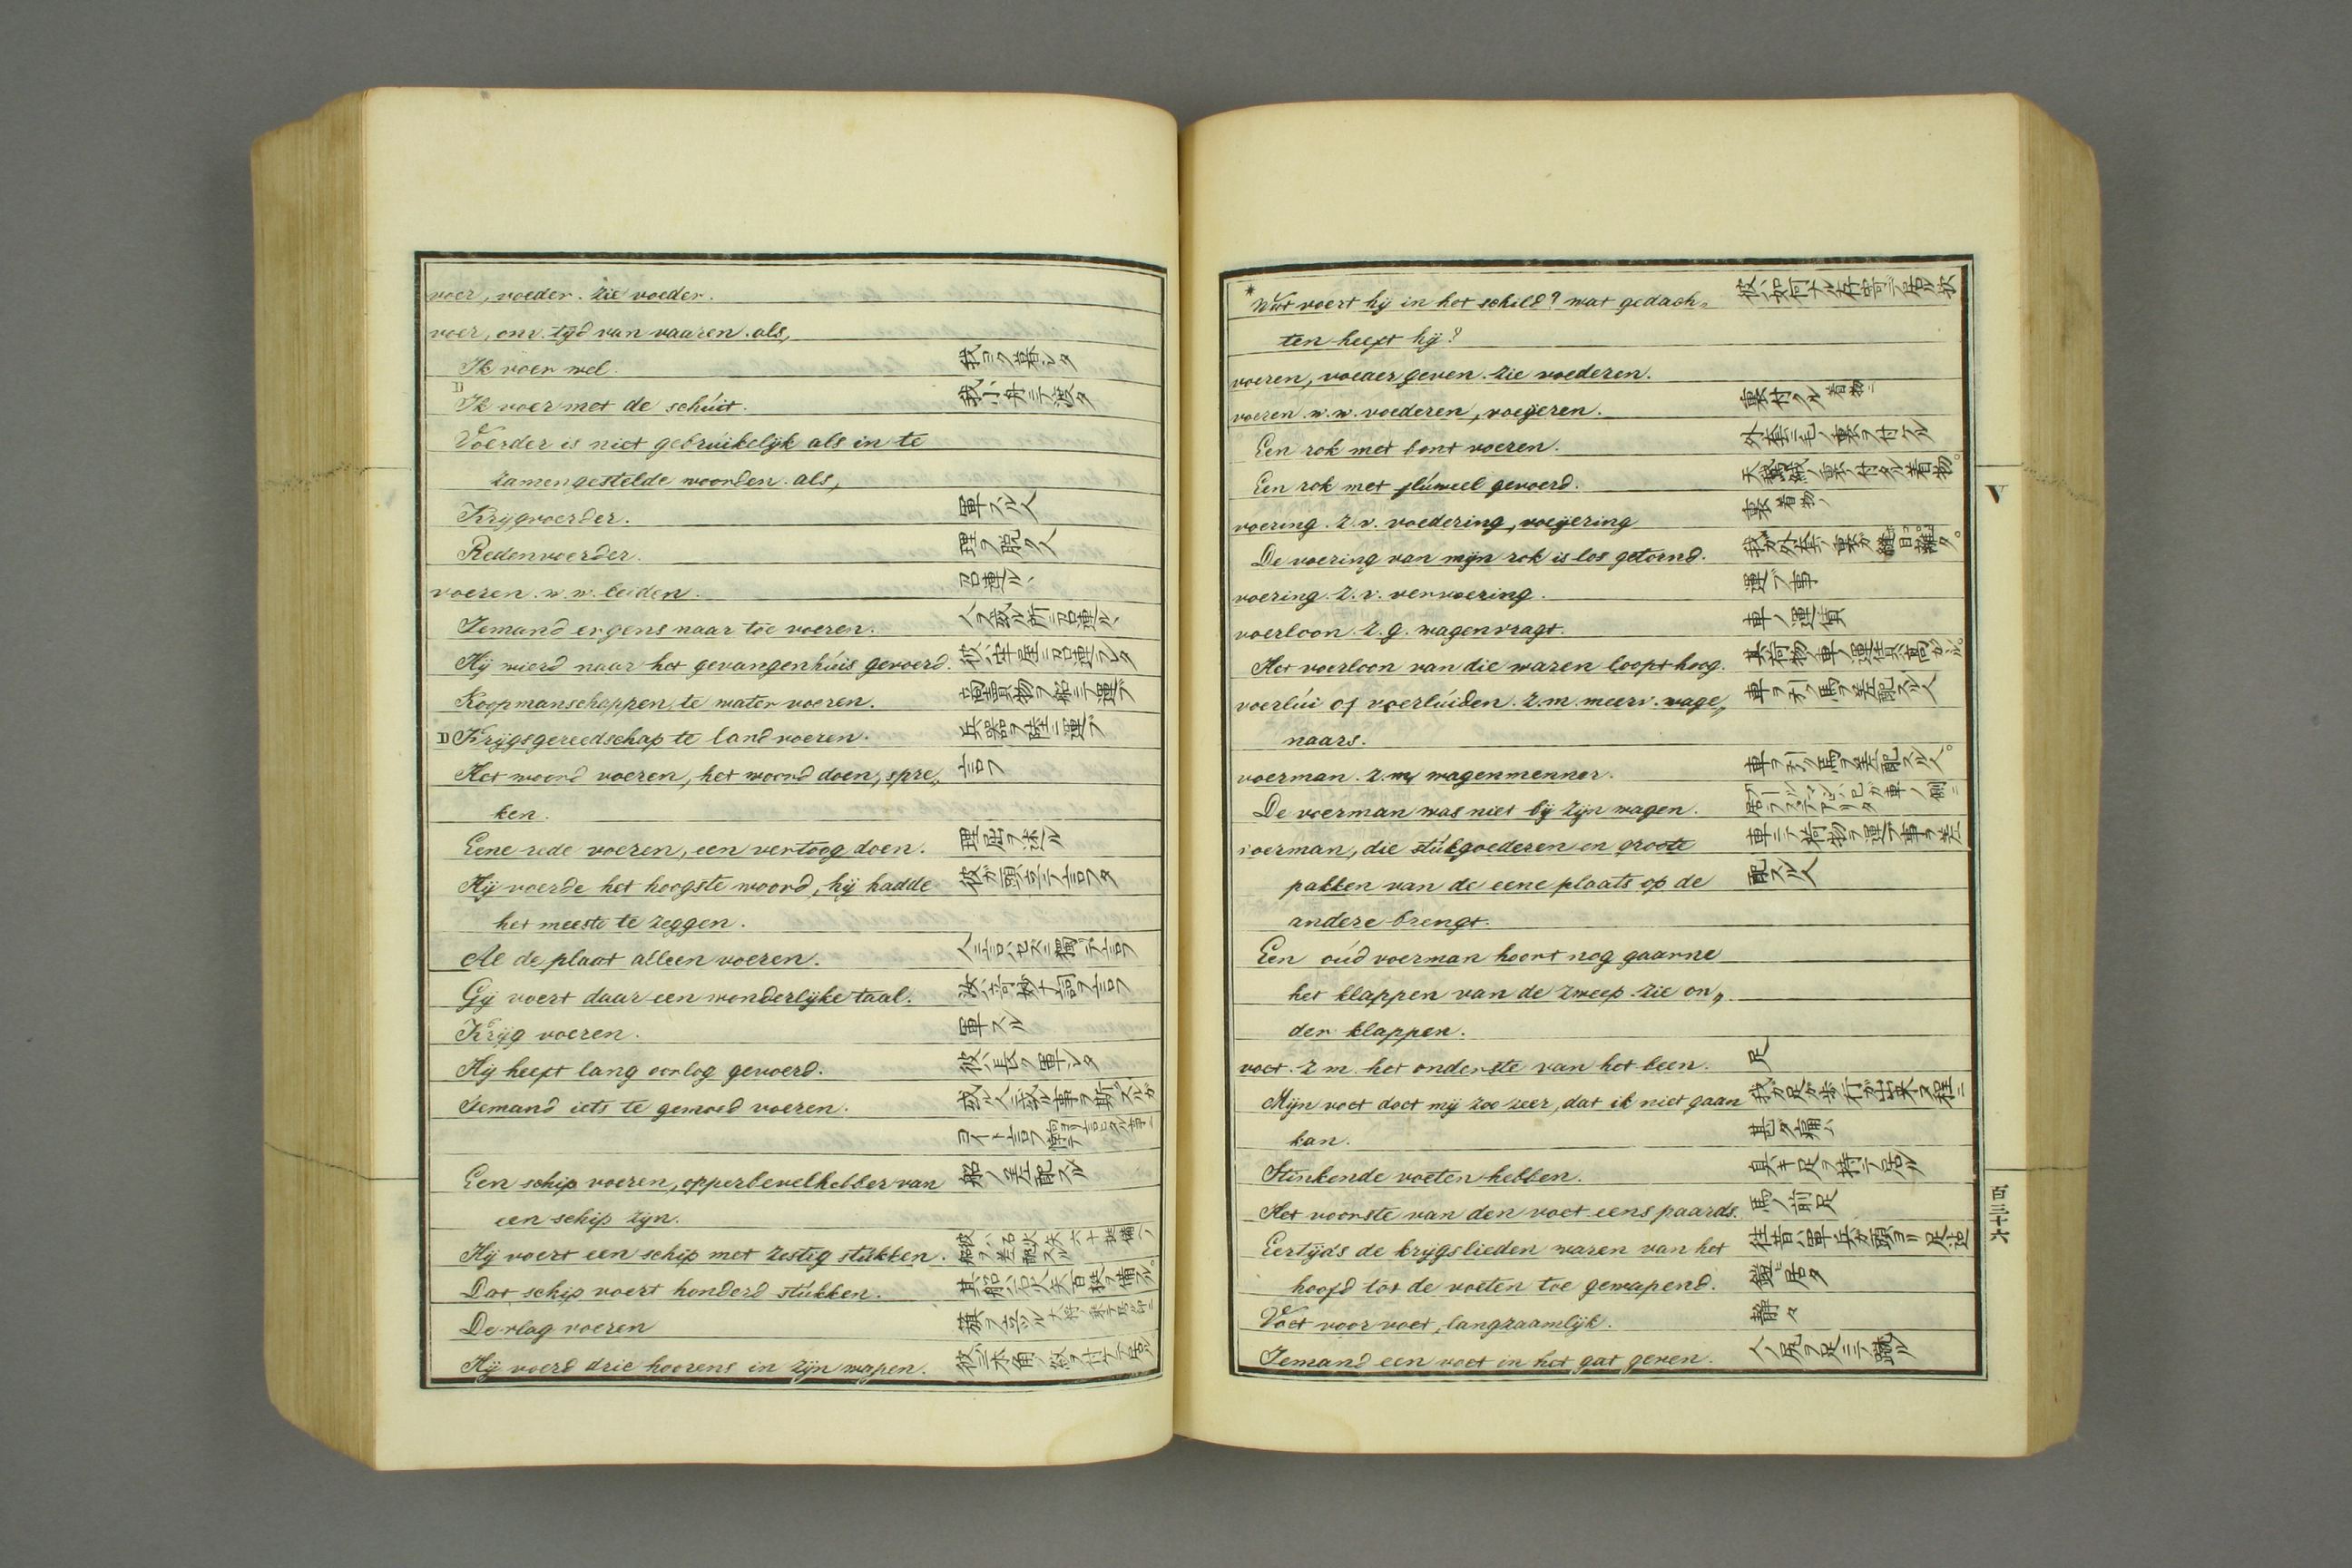 voer, voeder. zie voeder.
voer, onv. tijd van vaaren. als,
Ik voer wel. 我ヨク暮シタ
D
Ik voer met de schúit. 我小舟ニテ渡タ
Voerder is niet gebrúikelijk als in te
zamengestelde woorden. als,
Krijgvoerder. 軍スル人
Redenvoerder. 理ヲ脱ク人
voeren. w. w. leiden. 召連ル、
Iemand ergens naar toe voeren. 人ヲ或ル所ニ召連ル、
Hij wierd naar het gevangenhúis gevoerd. 彼ハ牢屋ニ召連ラレタ
Koopmanschappen te water voeren. 商賣物ヲ船ニテ運ブ
D Krijgsgereedschap te land voeren. 兵器ヲ陸ニ運ブ
Het woord voeren, het woord doen, spre„ 言フ
ken.
Eene rede voeren, een vertoog doen. 理屈ヲ述ル
Hij voerde het hoogste woord, hij hadde 彼が頭立テ言フタ
het meeste te zeggen.
Al de plaat alleen voeren. 人ニ言ハセズニ獨デ言フ
Gij voert daar een wonderlijke taal. 汝ハ奇妙ナ詞ヲ言フ
Krijg voeren. 軍スル
Hij heeft lang oorlog gevoerd. 彼ハ長ク軍シタ
Iemand iets te gemoed voeren. 或ル人ニ或ル事ヲ斯スルガ
ヨイト言フ
Een schip voeren, opperbevelhebber van 船ノ差配スル
een schip zijn.
Hij voert een schip met zestig stúkken. 彼ハ石火矢六十挺備ノ船ヲ差配スル
Dat schip voert honderd stúkken. 其船ハ石火矢百挺ヲ備フル。
De vlag voeren 籏ヲ立ツル
Hij voerd drie hoorens in zijn wapen. 彼ハ三本角ノ紋ヲ付ケテ居ル
* Wat voert hij in het schild? wat gedach„ 彼ハ如何ナル存寄ニテ居ル歟
ten heeft hij?
voeren, voeder geven. zie voederen.
voeren. w. w. voederen, voeijeren. 裏付クル 着物ニ
Een rok met bont voeren. 外套ニ毛ノ裏ヲ付ケル
Een rok met flúweel gevoerd. 天鵞絨ノ裏ノ付タル着物。
voering. z. v. voedering, voeijering 裏 着物ノ
De voering van mijn rok is los getornd. 我ガ外套ノ裏ガ縫目ガ離タ。
voering. z. v. vervoering. 運ブ事
voerloon. z. g. wagenvragt. 車ノ運賃
Het voerloon van die waren loopt hoog. 其荷物ノ車ノ運賃ハ高ガル。
voerlúi of voerlúiden. z. m. meerv. wage„ 車ヲ引ク馬ヲ差配スル人
naars.
voerman. z. m. wagenmenner. 車ヲ引ク馬ヲ差配スル人。
De voerman was niet bij zijn wagen. フールマンハ己ガ車ノ側ニ居ラズニアリタ
voerman, die stúkgoederen en groote 車ニテ荷物ヲ運ブ事ヲ差
pakken van de eene plaats op de 配スル人
andere brengt.
Een oúd voerman hoort nog gaarne
het klappen van de zweep. zie on„
der klappen.
voet. z. m. het onderste van het been. 足
Mijn voet doet mij zoo zeer, dat ik niet gaan 我ガ足ガ歩行ガ出来ヌ程ニ
kan. 甚ダ痛ム
Stinkende voeten hebben. 臭キ足ヲ持テ居ル
Het voorste van den voet eens paards. 馬ノ前足
Eertijds de krijgslieden waren van het 往昔ハ軍兵ガ頭ヨリ足迄
hoofd tot de voeten toe gewapend. 鎧テ居タ
Voet voor voet, langzaamlijk. 靜々
Iemand een voet in het gat geven. 人ノ尻ヲ足ニテ蹴ル
V
百三十六